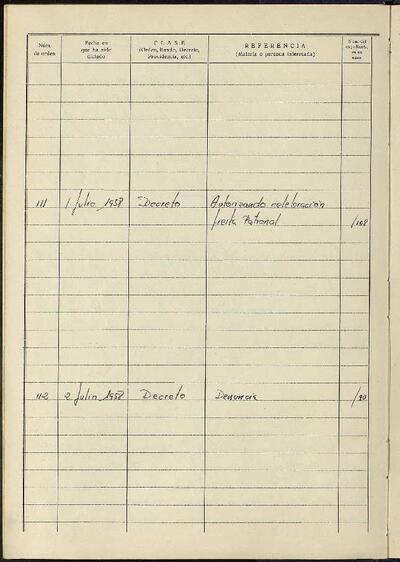 Núm. de orden
Fecha en que ha sido dictado
CLASE (Orden, Bando, Decreto, Providencia, etc.)
REFERENCIA (Materia o persona interesada)
Núm. del expediente,
111 1 Julio 1958 Decreto Autorizando celebración
fiesta Patronal /108
112 2 Julio 1958 Decreto Denuncia /90